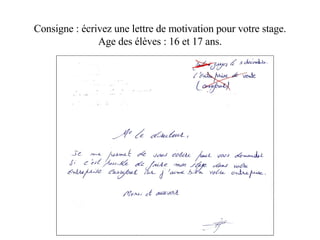 Consigne : écrivez une lettre de motivation pour votre stage.
Age des élèves : 16 et 17 ans.
le 3 décembre.
l'entreprise de vente
(carrefour)
Mr le directeur.
Je me permet de vous ecrire pour vous demander
si c'est possible de faire mon stage dans votre
entreprise carrefour car j'aime bien votre entreprise.
Merci et aurevoir